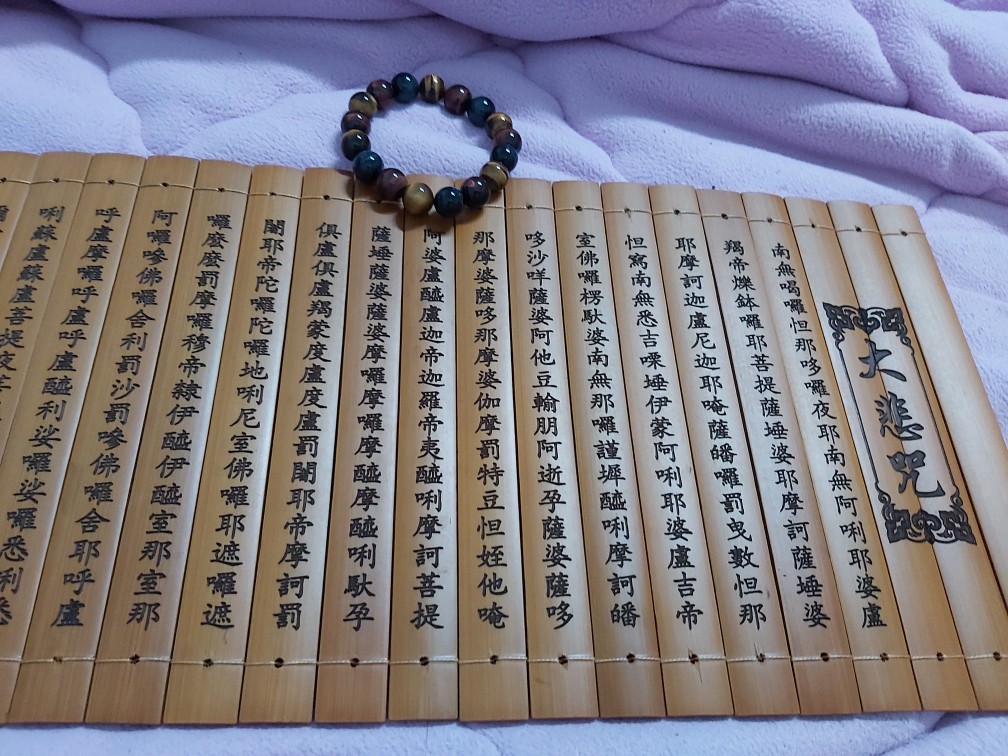 大悲咒
南無喝囉怛那哆囉夜耶南無阿唎耶婆盧
羯帝爍鉢囉耶菩提薩埵婆耶摩訶薩埵婆
耶摩訶迦盧尼迦耶唵薩皤囉罰曳數怛那
怛寫南無悉吉嘌埵伊蒙阿唎耶婆盧吉帝
室佛囉楞馱婆南無那囉謹墀醯唎摩訶皤
哆沙咩薩婆阿他豆輸朋阿逝孕薩婆薩哆
那摩婆薩哆那摩婆伽摩罰特豆怛姪他唵
阿婆盧醯盧迦帝迦羅帝夷醯唎摩訶菩提
薩埵薩婆薩婆摩囉摩囉摩醯摩醯唎馱孕
俱盧俱盧羯蒙度盧度盧罰闍耶帝摩訶罰
闍耶帝陀囉陀囉地唎尼室佛囉耶遮囉遮
囉麼麼罰摩囉穆帝隸伊醯伊醯室那室那
阿囉嘇佛囉舍利罰沙罰嘇佛囉舍耶呼盧
呼盧摩囉呼盧呼盧醯利娑囉娑囉悉利悉
唎蘇盧蘇盧菩提夜菩